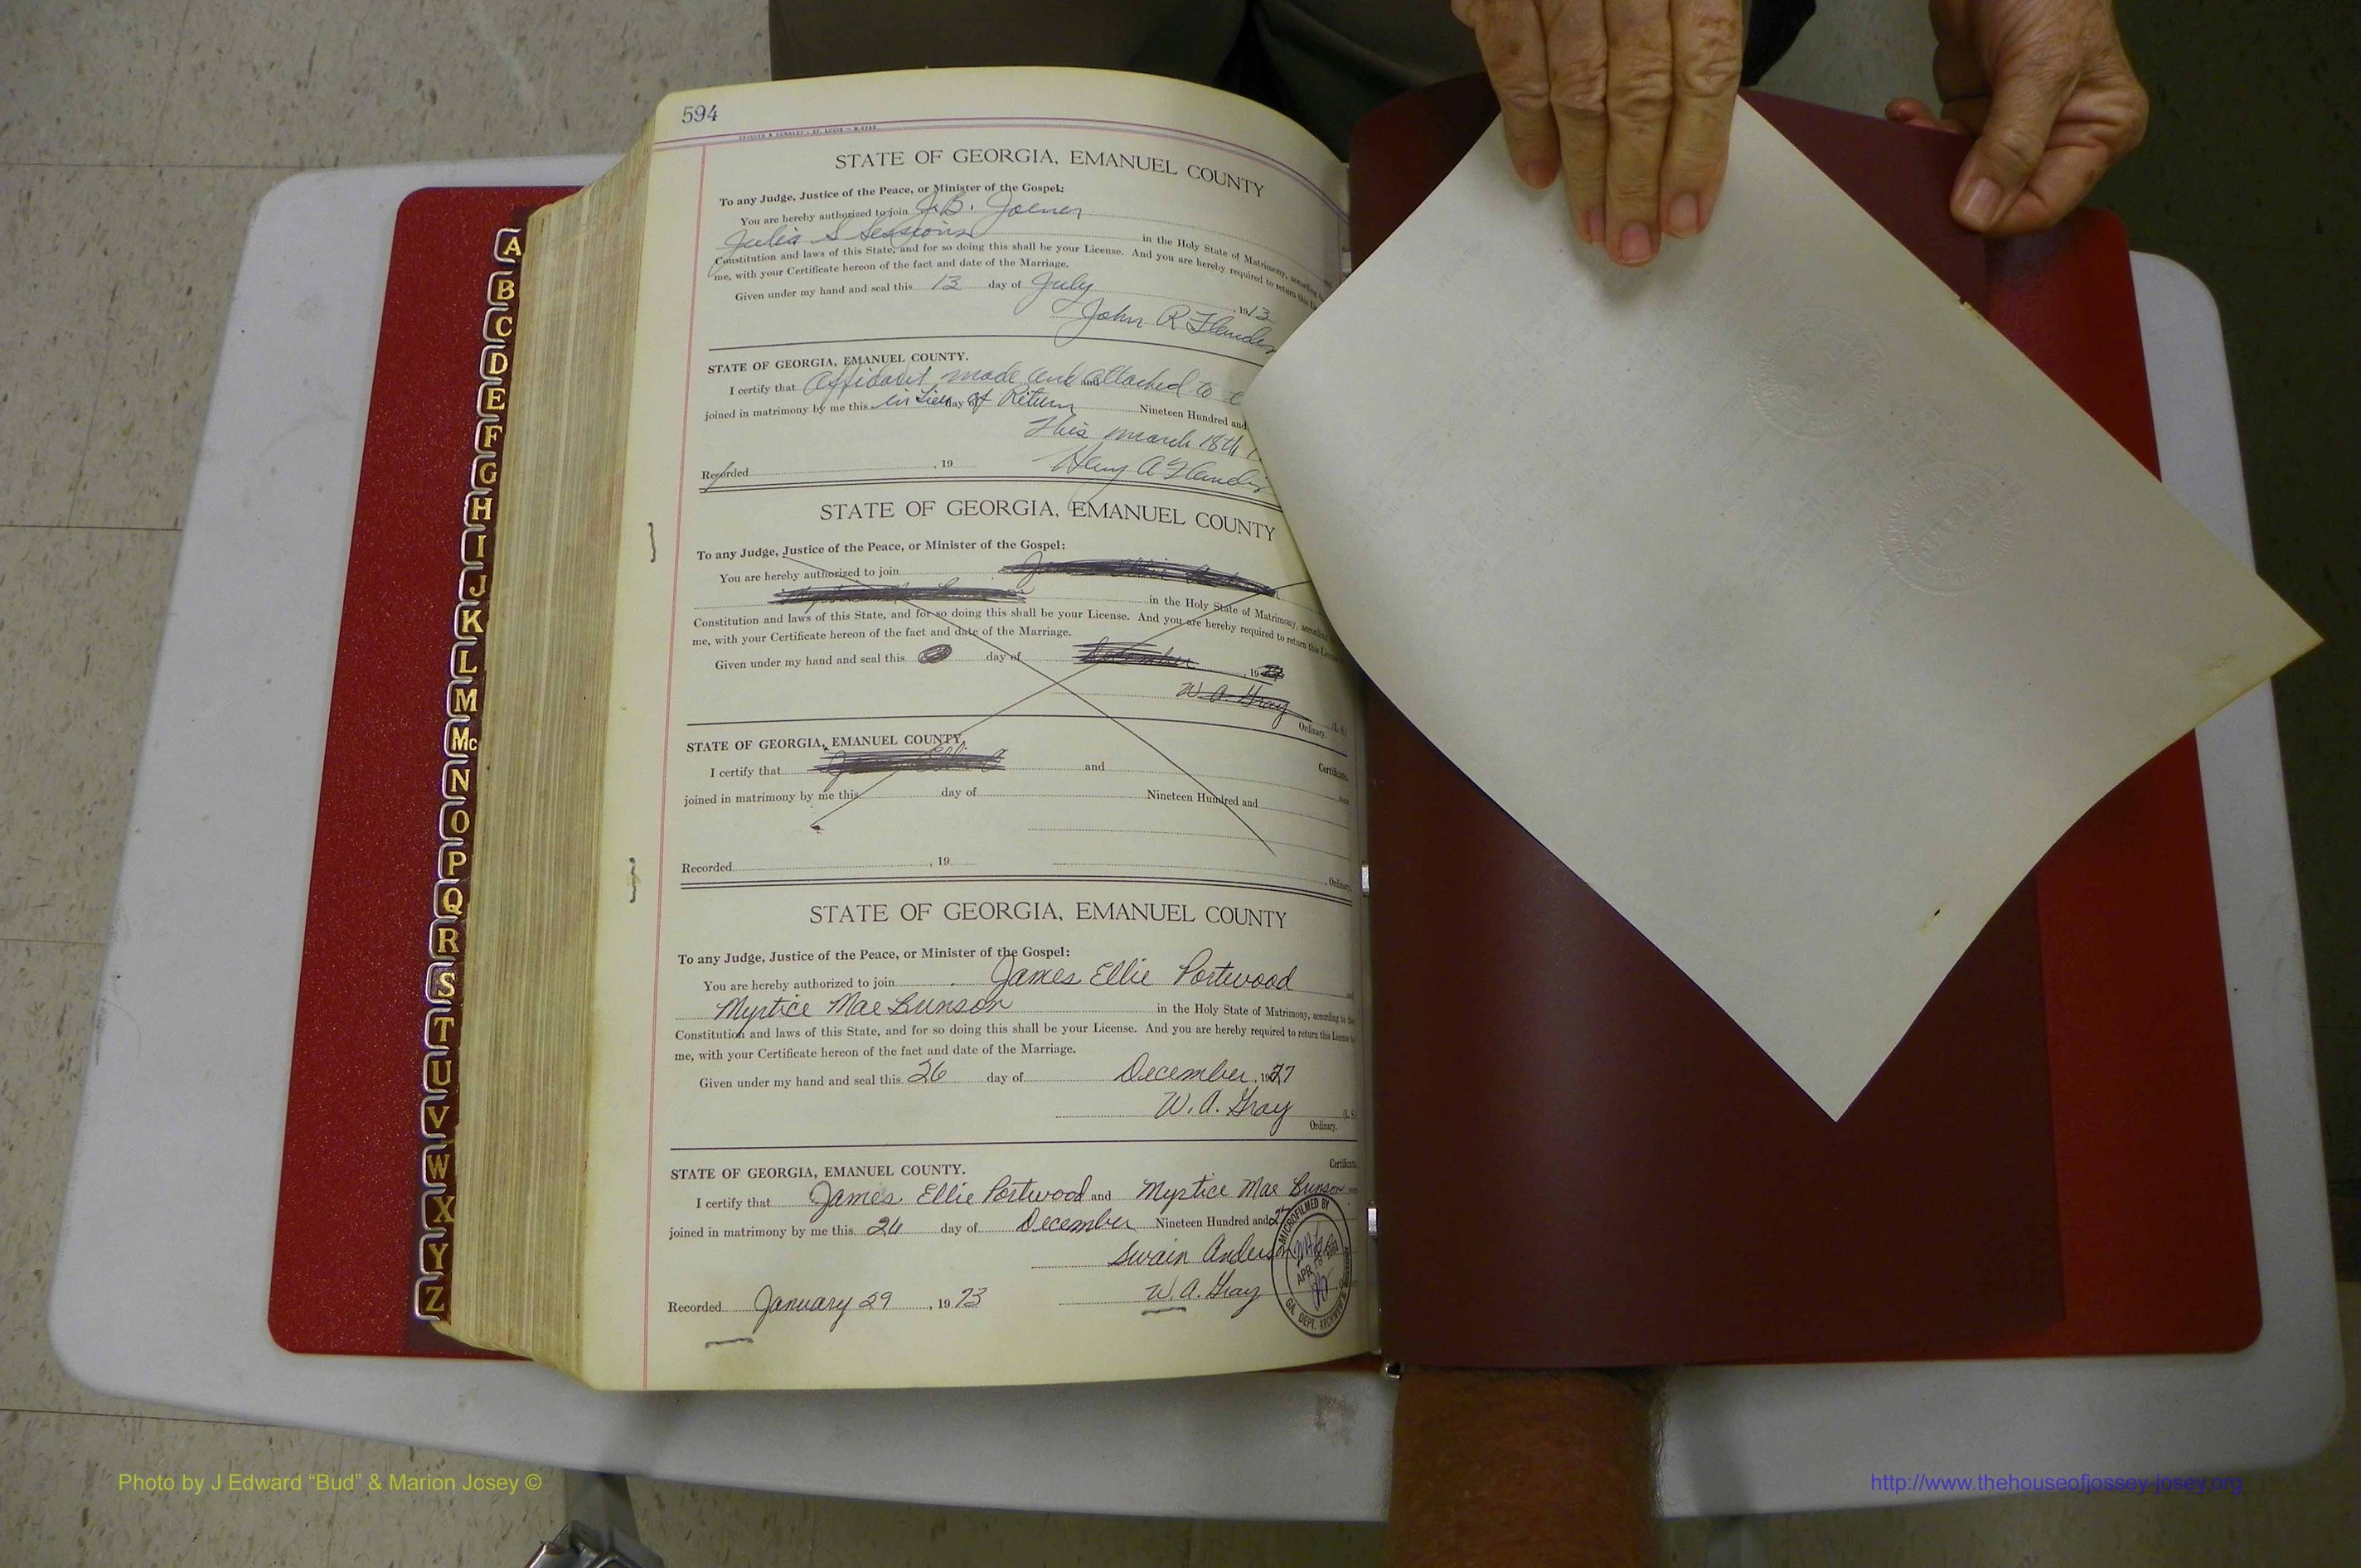 594
STATE OF GEORGIA, EMANUEL COUNTY
To any Judge, Justice of the Peace, or Minister of the Gospel:
You are hereby authorized to join J. B. Joener
Julia S Sessions in the Holy State of Matrimony, according
Constitution and laws of this State, and for so doing this shall be your License. And you are hereby required to return this
me, with your Certificate hereon of the fact and date of the Marriage.
Given under my hand and seal this 13 day of July, 1913
John R Flanders
STATE OF GEORGIA, EMANUEL COUNTY.
I certify that Affidavit made and and attached to
joined in matrimony by me this in lieu day of Return Nineteen Hundred and
This march 18th
Recorded , 19
STATE OF GEORGIA, EMANUEL COUNTY
To any Judge, Justice of the Peace, or Minister of the Gospel:
You are hereby authorized to join
in the Holy State of Matrimony, according
Constitution and laws of this State, and for so doing this shall be your License. And you are hereby required to return this
me, with your Certificate hereon of the fact and date of the Marriage.
Given under my hand and seal this day of December , 19
W A Gray
Ordinary. (L. S.)
STATE OF GEORGIA, EMANUEL COUNTY.
Certificate.
I certify that and
joined in matrimony by me this day of Nineteen Hundred and
Recorded , 19
Ordinary
STATE OF GEORGIA, EMANUEL COUNTY
To any Judge, Justice of the Peace, or Minister of the Gospel:
You are hereby authorized to join James Ellie Portwood
Myrtice Mae Brunson in the Holy State of Matrimony, according to the
Constitution and laws of this State, and for so doing this shall be your License. And you are hereby required to return this License to
me, with your Certificate hereon of the fact and date of the Marriage.
Given under my hand and seal this 26 day of December, 1927
W. A. Gray (L. S.)
Ordinary.
STATE OF GEORGIA, EMANUEL COUNTY.
Certificate.
I certify that James Ellie Portwood and Myrtice Mae Brunson were
joined in matrimony by me this 26 day of December Nineteen Hundred and 27
Swain Anderson
Recorded January 29, 1973 W. A. Gray
MICROFILMED BY
APR 18
GA. DEPT. ARCHIVES &
A
B
C
D
E
F
G
H
I
J
K
L
M
Mc
N
O
P
Q
R
S
T
U
V
W
X
Y
Z
Photo by J Edward “Bud” & Marion Josey ©
http://www.thehouseofjossey-josey.org